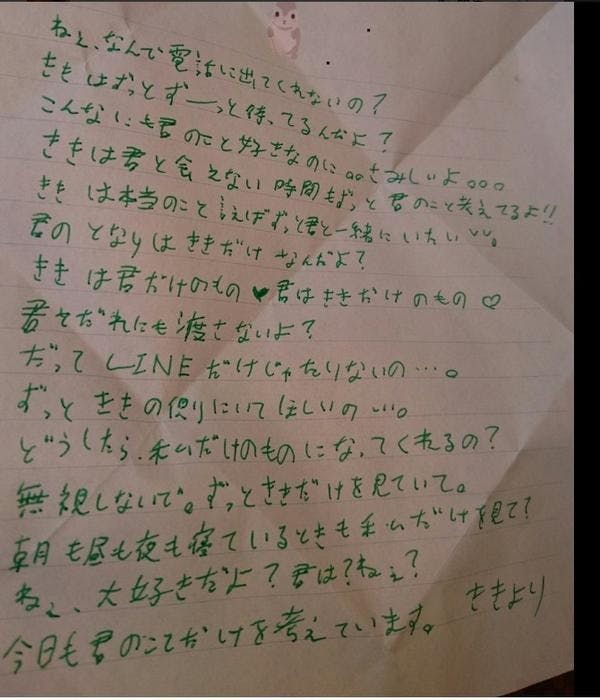 ねぇ、なんで電話に出てくれないの?
ききはずっとずーっと待ってるんだよ?
こんなにも君のこと好きなのに。。さみしいよ。。。
ききは君と会えない時間もずっと君のこと考えてるよ!!
ききは本当のこと言えばずっと君と一緒にいたい…。
君のとなりはききだけなんだよ?
ききは君だけのもの♥君はききだけのもの♡
君をだれにも渡さないよ?
だってLINEだけじゃたりないの…。
ずっとききの側りにいてほしいの…。
どうしたら、私だけのものになってくれるの?
無視しないで。ずっとききだけを見ていて。
朝も昼も夜も寝ているときも私だけを見て?
ねぇ、大好きだよ?君は?ねぇ?
今日も君のことだけを考えています。ききより